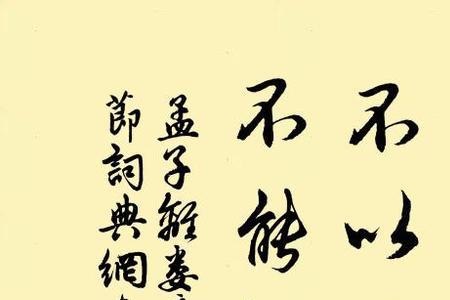 不以
不能
孟子離娄
節詞典網